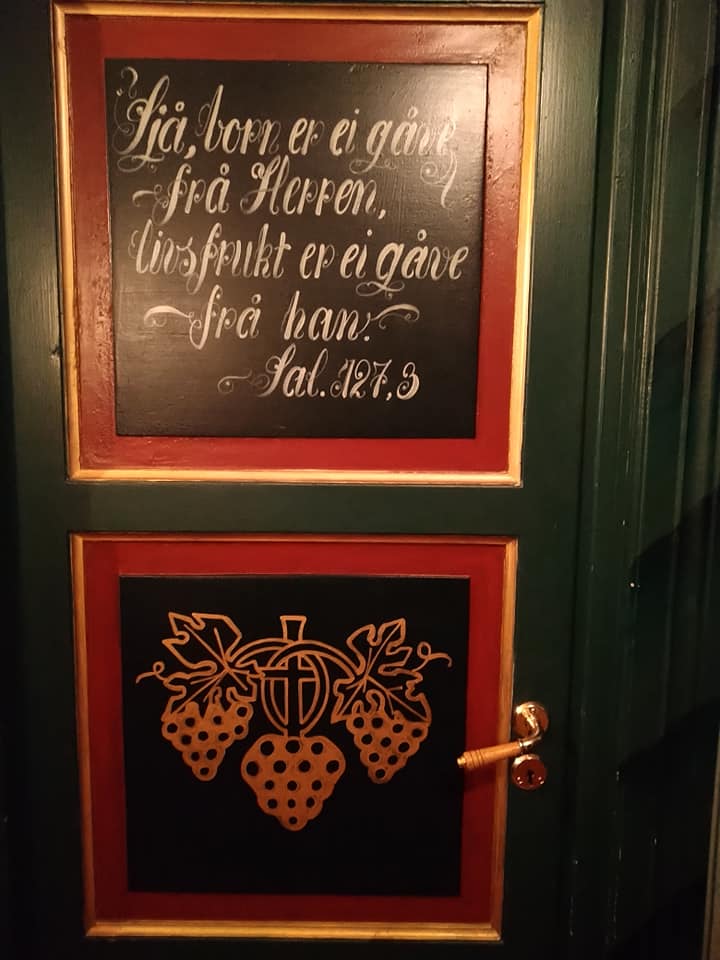 Sjå, born er ei gåve
frå Herren,
livsfrukt er ei gåve
frå han.
Sal. 127,3